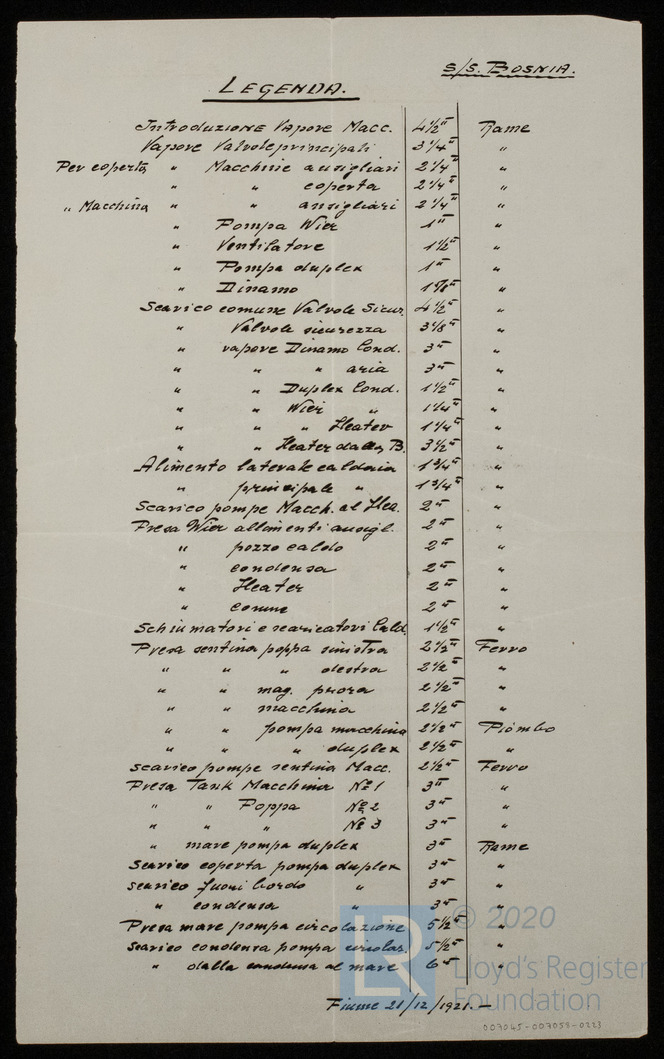 S/S. BOSNIA.
LEGENDA.
Introduzione Vapore Macc. 4½" Rame
Vapore Valvole principali 3¼" "
Per coperta " Macchine ausigliari 2¼" "
" " coperta 2¼" "
" Macchina " " ausigliari 2¼" "
" Pompa Wier 1" "
" Ventilatore 1½" "
" Pompa duplex 1" "
" Dinamo "
Scarico comune Valvole Sicur. 4½" "
" Valvole sicurezza "
" vapore Dinamo Cond. 3" "
" " " aria 3" "
" " Duplex Cond. 1½" "
" " Wier " 1¼" "
" " " Heater 1¼" "
" " Heater dalla B. 3½" "
Alimento laterale caldaia 1¾" "
" principale " 1¾" "
Scarico pompe Macch. al Hea. 2" "
Presa Wier alimenti ausigl. 2" "
" pozzo caldo 2" "
" condensa 2" "
" Heater 2" "
" comune 2" "
Schiumatori e scaricatori Cald. 1½" "
Presa sentina poppa sinistra 2½" Ferro
" " " destra 2½" "
" " mag. prora 2½" "
" " macchina 2½" "
" " pompa macchina 2½" Piombo
" " " duplex 2½" "
Scarico pompe sentina Macc. 2½" Ferro
Presa Tank Macchina No 1 3" "
" " Poppa No 2 3" "
" " " No 3 3" "
" mare pompa duplex 3" Rame
Scarico coperta pompa duplex 3" "
scarico fuori bordo " 3" "
" condensa " 3" "
Presa mare pompa circolazione 5½" "
scarico condensa pompa circolaz. 5½" "
" dalla condensa al mare 6" "
Fiume 21/12/1921.-
LR
© 2020
Lloyd's Register
Foundation
007045-007058-0223